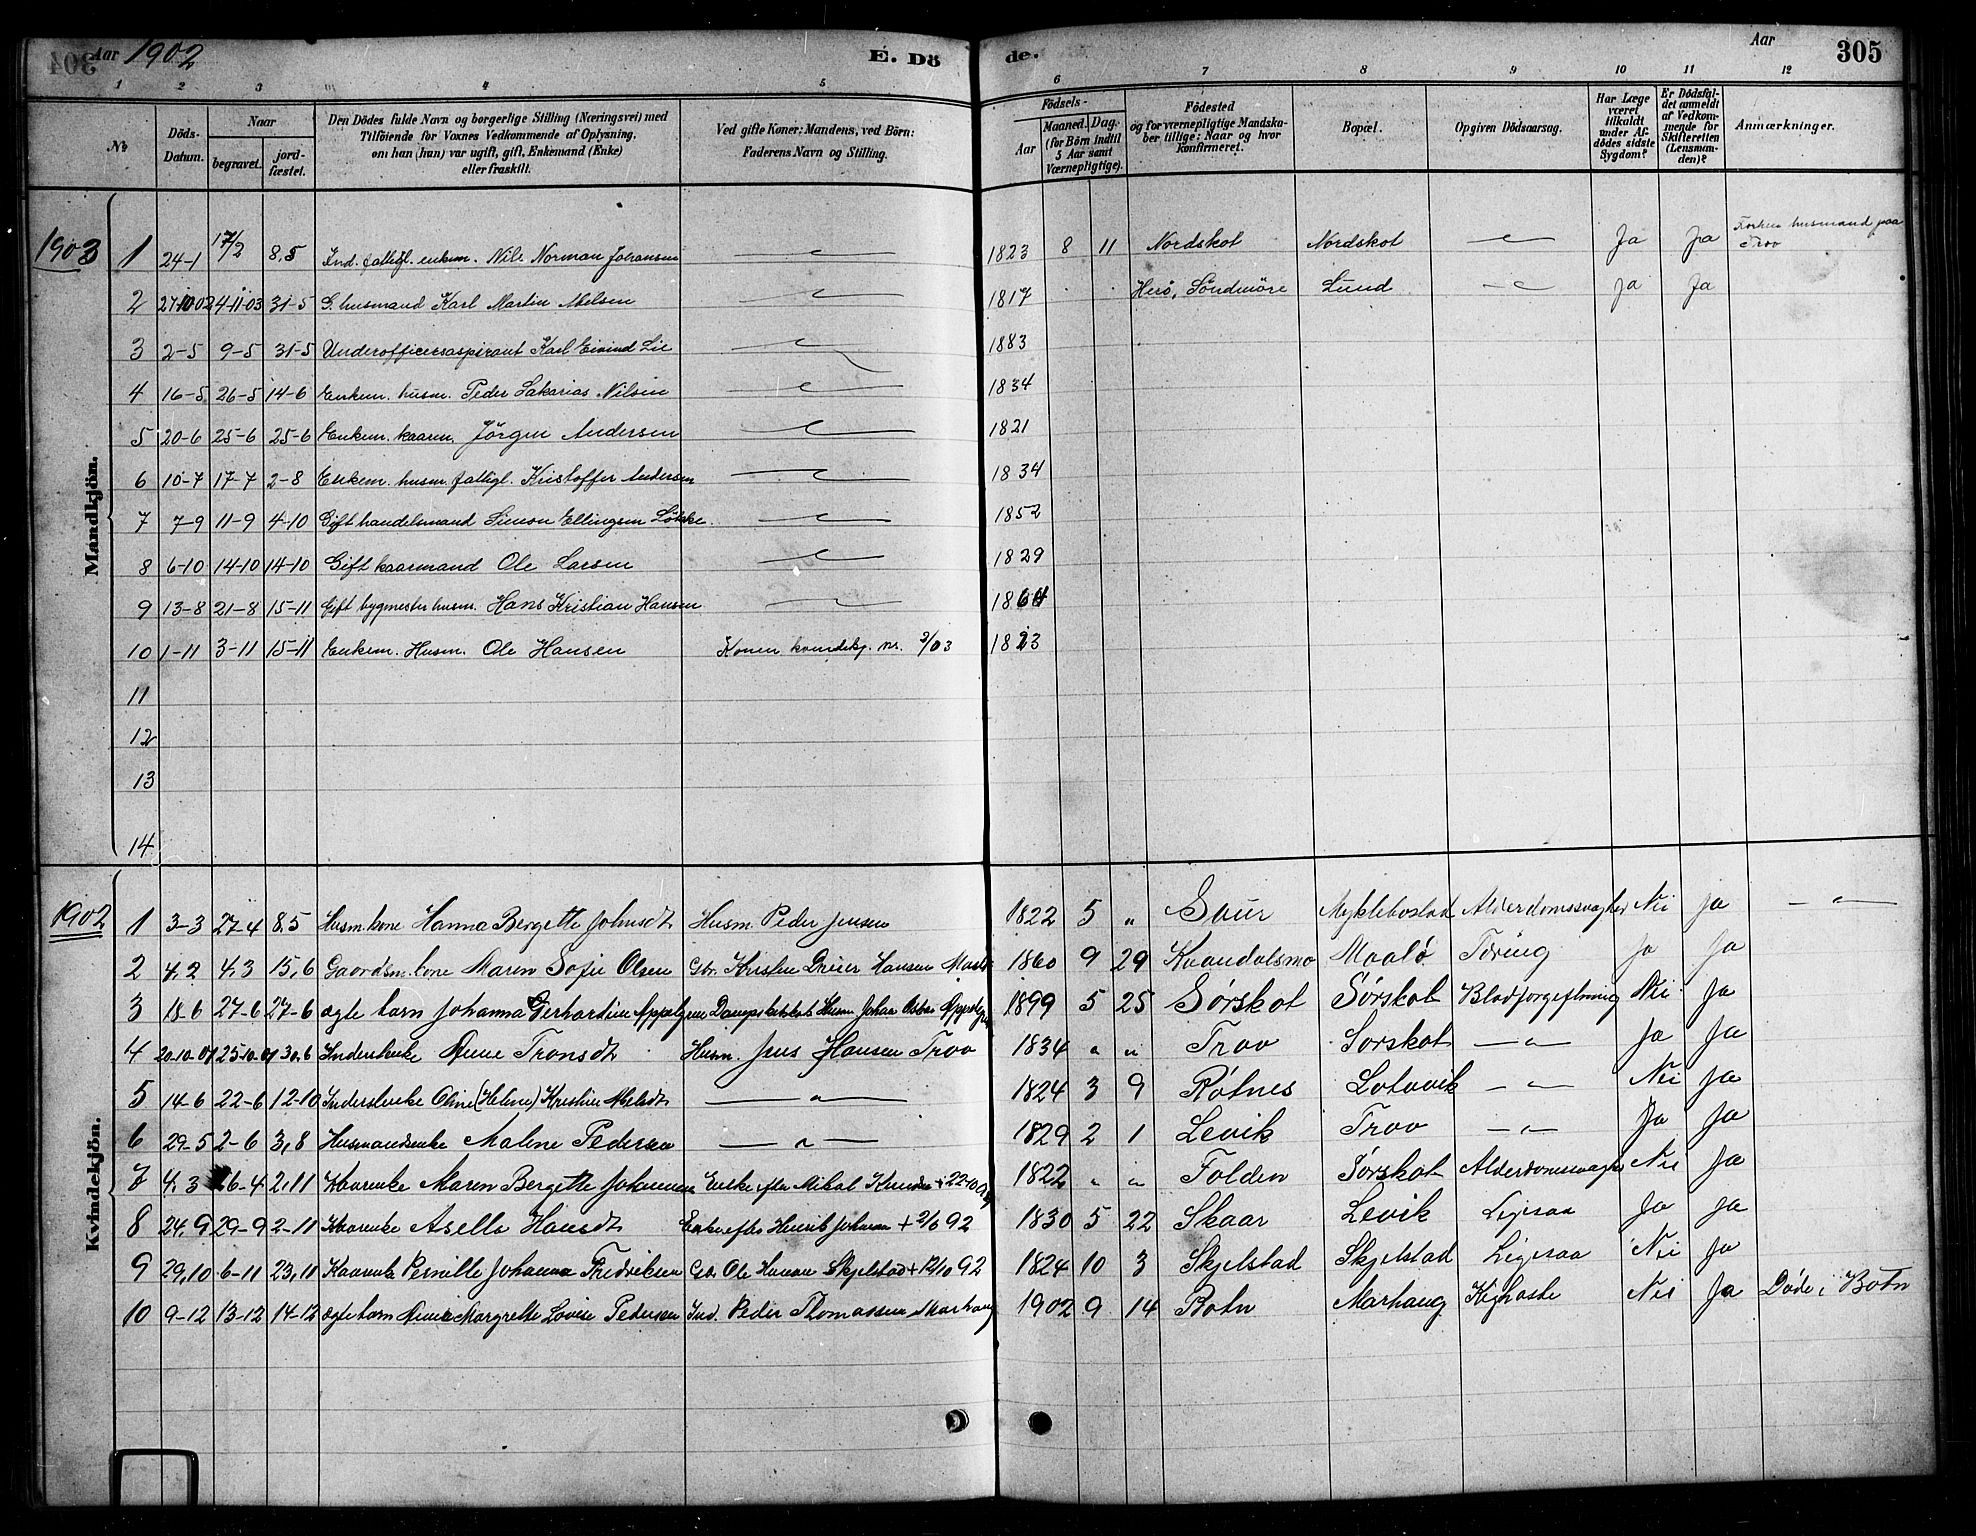 304 Aar 1902 E. Dö
1 2 3 4 5
№ Döds-Datum. Naar begravet. jord-fæstet. Den Dödes fulde Navn og borgerlige Stilling (Næringsvei) med Tilföiende for Voxnes Vedkommende af Oplysning, om han (hun) var ugift, gift, Enkemand (Enke) eller fraskilt. Ved gifte Koner: Mandens, ved Börn: Faderens Navn og Stilling.
de. Aar 305
6 7 8 9 10 11 12
Födsels- Aar Maaned. Dag. (for Börn indtil 5 Aar samt Værnepligtige). Födested og for værnepligtige Mandskaber tillige: Naar og hvor konfirmeret. Bopæl. Opgiven Dödsaarsag. Har Læge været tilkaldt under Afdödes sidste Sygdom? Er Dödsfaldet anmeldt af Vedkommende for Skifteretten (Lensmanden)? Anmærkninger.
Mandkjön.
1903 1 24-1 17/2 8,5 Ind. fattigl. enkem. Nils Norman Johansen 1823 8 11 Nordskot Nordskot Ja Ja husmand paa Trov
2 27-10-02 4-11-03 31-5 G. husmand Karl Martin Nelsen 1817 Herö, Söndmöre Lund Ja Ja
3 2-5 9-5 31-5 Underofficersaspirant Karl Eivind Lie 1883
4 16-5 26-5 14-6 Enkem. husm. Peder Sakarias Nilsen 1834
5 20-6 25-6 25-6 Enkem. kaarm. Jörgen Andersen 1821
6 10-7 17-7 2-8 Enkem. husm. fattigl. Kristoffer Andersen 1834
7 7-9 11-9 4-10 Gift handelsmand Simon Ellingsen 1852
8 6-10 14-10 14-10 Gift kaarmand Ole Larsen 1829
9 13-8 21-8 15-11 Gift bygmester husm. Hans Kristian Hansen
10 1-11 3-11 15-11 Enkem. Husm. Ole Hansen Konen kvindekj. nr. 3/03 1823
11
12
13
14
Kvindekjön.
1902 1 3-3 27-4 8,5 Husm. kone Hanna Bergette Johnsdt Husm. Peder Jensen 1822 5 " Svur Myklebostad Alderdomssvaghed Nei Ja — " —
2 4,2 4,3 15,6 Gaardsm. kone Maren Sofie Olsen Gbr. Kristen Hansen 1860 9 29 Kvandalsmo Maalö Tæring Ja Ja
3 18-6 27-6 27-6 ægte barn Johanna Gerhardine Husm. Johan 1899 5 25 Sørskot Sørskot Blodforgiftning Nei Ja
4 20-10-01 25-10-01 30,6 Inderstenke Anne Tronsdt Husm. Jens Hansen Trov 1834 " " Trov Sørskot — " — Ja Ja
5 14-6 22-6 12-10 Inderstenke Oline (Helene) Kristine Nelsdt — " — 1824 3 9 Røtnes Lotovik — " — Nei Ja
6 29-5 2-6 3,8 Husmandsenke Malene Pedersen — " — 1829 2 1 Levik Trov — " — Ja Ja
7 4,3 26-4 2,11 Kaarenke Maren Bergette Johannesen Enke efter Mikal 1822 " " Folden Sørskot Alderdomssvaghed Nei Ja
8 24,9 29-9 2-11 Kaarenke Asella Hansdt Enke efter Henrik Johnsen + 2/6 92 1830 5 22 Skaar Levik Ligesaa Ja Ja
9 29,10 6-11 23,11 Kaarenke Pernille Johanna Fredriksen Gbr. Ole Hansen Skjelstad + 12/10 92 1824 10 3 Skjelstad Skjelstad Ligesaa Nei Ja
10 9-12 13-12 14-12 ægte barn Margrethe Lovise Pedersen Ind. Peder Thomassen Marhaug 1902 9 14 Botn Marhaug Kighoste Nei Ja Døde i Botn